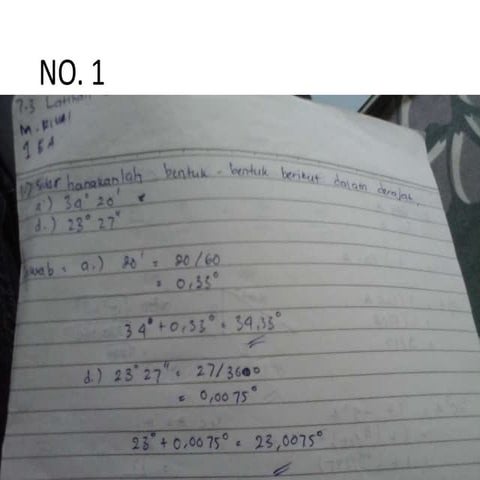 NO. 1
7.3 Latihan
1) Sederhanakanlah bentuk-bentuk berikut dalam derajat.
a.) 34° 20'
d.) 23° 27"
Jawab = a.) 20' = 20/60
= 0,33°
34° + 0,33° = 34,33°
d.) 23° 27" = 27/3600
= 0,0075°
23° + 0,0075° = 23,0075°